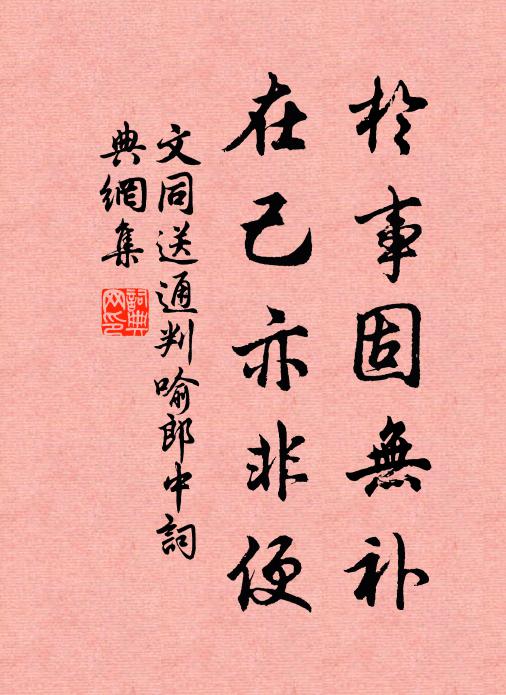 於事固無补
在己亦非便
文同送通判喻郎中詞
典網集
詞典
网印